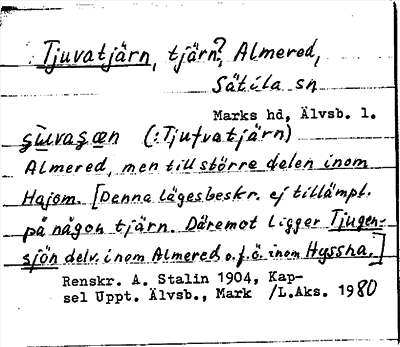 Tjuvatjärn, tjärn?, Almered,
Sätila sn
Marks hd, Älvsb. l.
(:Tjuvatjärn)
Almered, men till större delen inom
Hajom. [Denna lägesbeskr. ej tillämpl.
på någon tjärn. Däremot ligger Tjugen-
sjön delv. inom Almered o. f. ö. inom Hyssna.]
Renskr. A. Stalin 1904, Kap-
sel Uppt. Älvsb., Mark /L.Aks. 1980